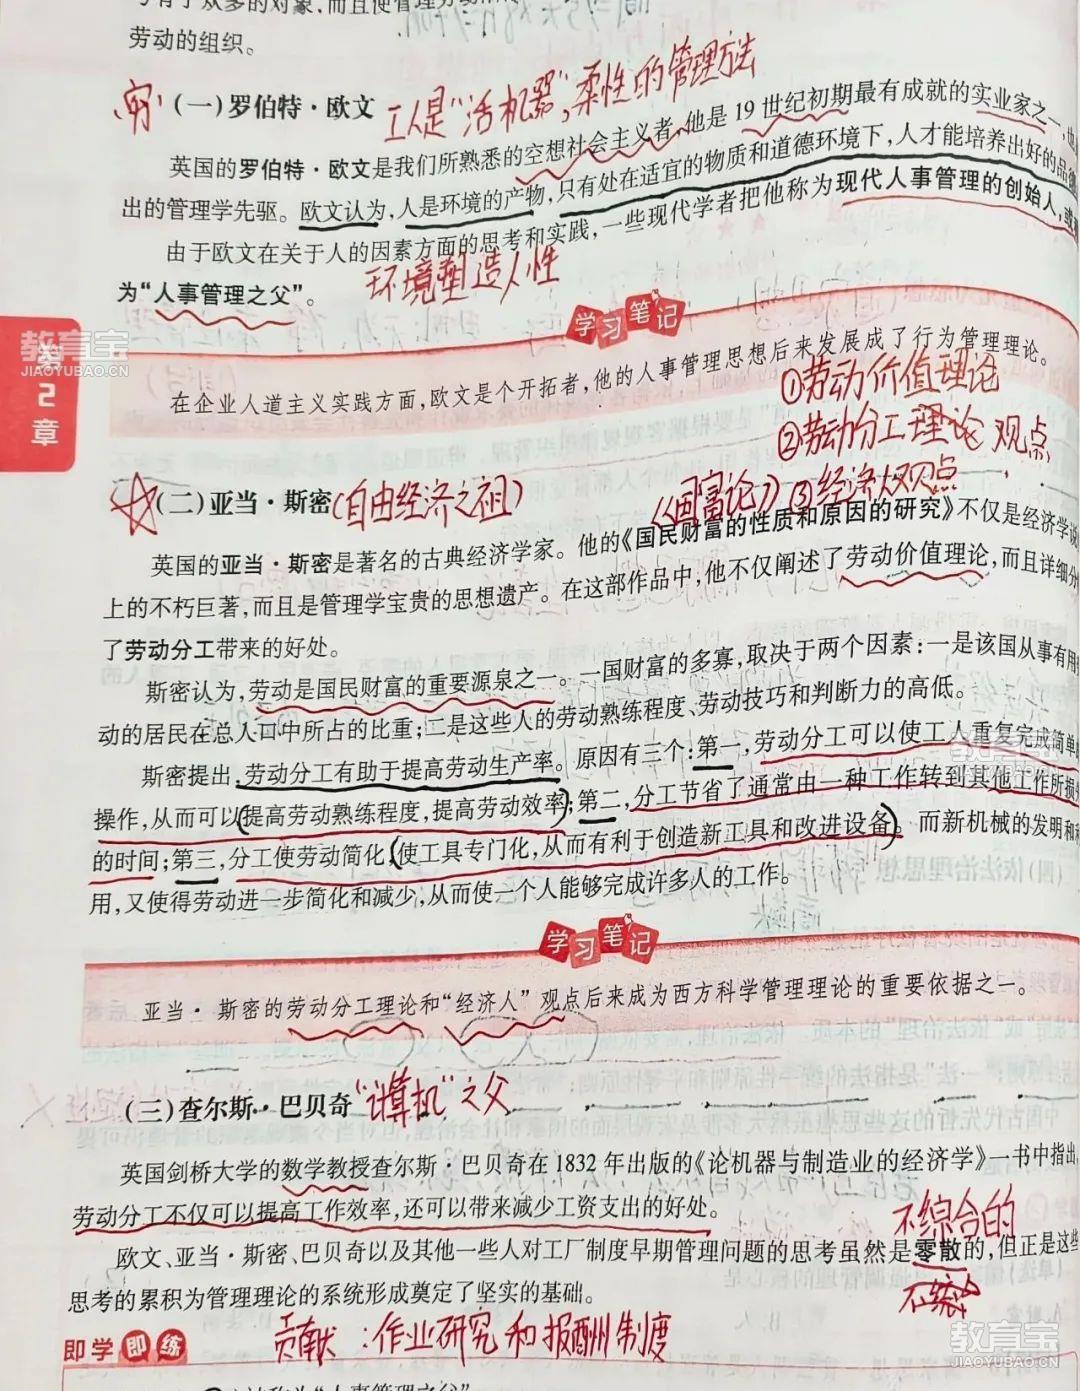 劳动的组织。
穷 (一)罗伯特·欧文 工人是“活机器”,柔性的管理方法
英国的罗伯特·欧文是我们所熟悉的空想社会主义者,他是19世纪初期最有成就的实业家之一,也
出的管理学先驱。欧文认为,人是环境的产物,只有处在适宜的物质和道德环境下,人才能培养出好的品德
由于欧文在关于人的因素方面的思考和实践,一些现代学者把他称为现代人事管理的创始人,或
为“人事管理之父”。 环境塑造人性
学习笔记
在企业人道主义实践方面,欧文是个开拓者,他的人事管理思想后来发展成了行为管理理论。
①劳动价值理论
②劳动分工理论 观点
(二)亚当·斯密(自由经济之祖) 《国富论》③经济人观点
英国的亚当·斯密是著名的古典经济学家。他的《国民财富的性质和原因的研究》不仅是经济学说
上的不朽巨著,而且是管理学宝贵的思想遗产。在这部作品中,他不仅阐述了劳动价值理论,而且详细分
了劳动分工带来的好处。
斯密认为,劳动是国民财富的重要源泉之一。一国财富的多寡,取决于两个因素:一是该国从事有用
动的居民在总人口中所占的比重;二是这些人的劳动熟练程度、劳动技巧和判断力的高低。
斯密提出,劳动分工有助于提高劳动生产率。原因有三个:第一,劳动分工可以使工人重复完成简单
操作,从而可以(提高劳动熟练程度,提高劳动效率);第二,分工节省了通常由一种工作转到其他工作所损
的时间;第三,分工使劳动简化,(使工具专门化,从而有利于创造新工具和改进设备)。而新机械的发明和
用,又使得劳动进一步简化和减少,从而使一个人能够完成许多人的工作。
学习笔记
亚当·斯密的劳动分工理论和“经济人”观点后来成为西方科学管理理论的重要依据之一。
(三)查尔斯·巴贝奇 “计算机”之父
英国剑桥大学的数学教授查尔斯·巴贝奇在1832年出版的《论机器与制造业的经济学》一书中指出,
劳动分工不仅可以提高工作效率,还可以带来减少工资支出的好处。 不综合的
欧文、亚当·斯密、巴贝奇以及其他一些人对工厂制度早期管理问题的思考虽然是零散的,但正是这些
思考的累积为管理理论的系统形成奠定了坚实的基础。
即学即练 贡献:作业研究和报酬制度
第2章
教育宝
JIAOYUBAO.CN
教育宝
JIAOYUBAO.CN
教育宝
JIAOYUBAO.CN